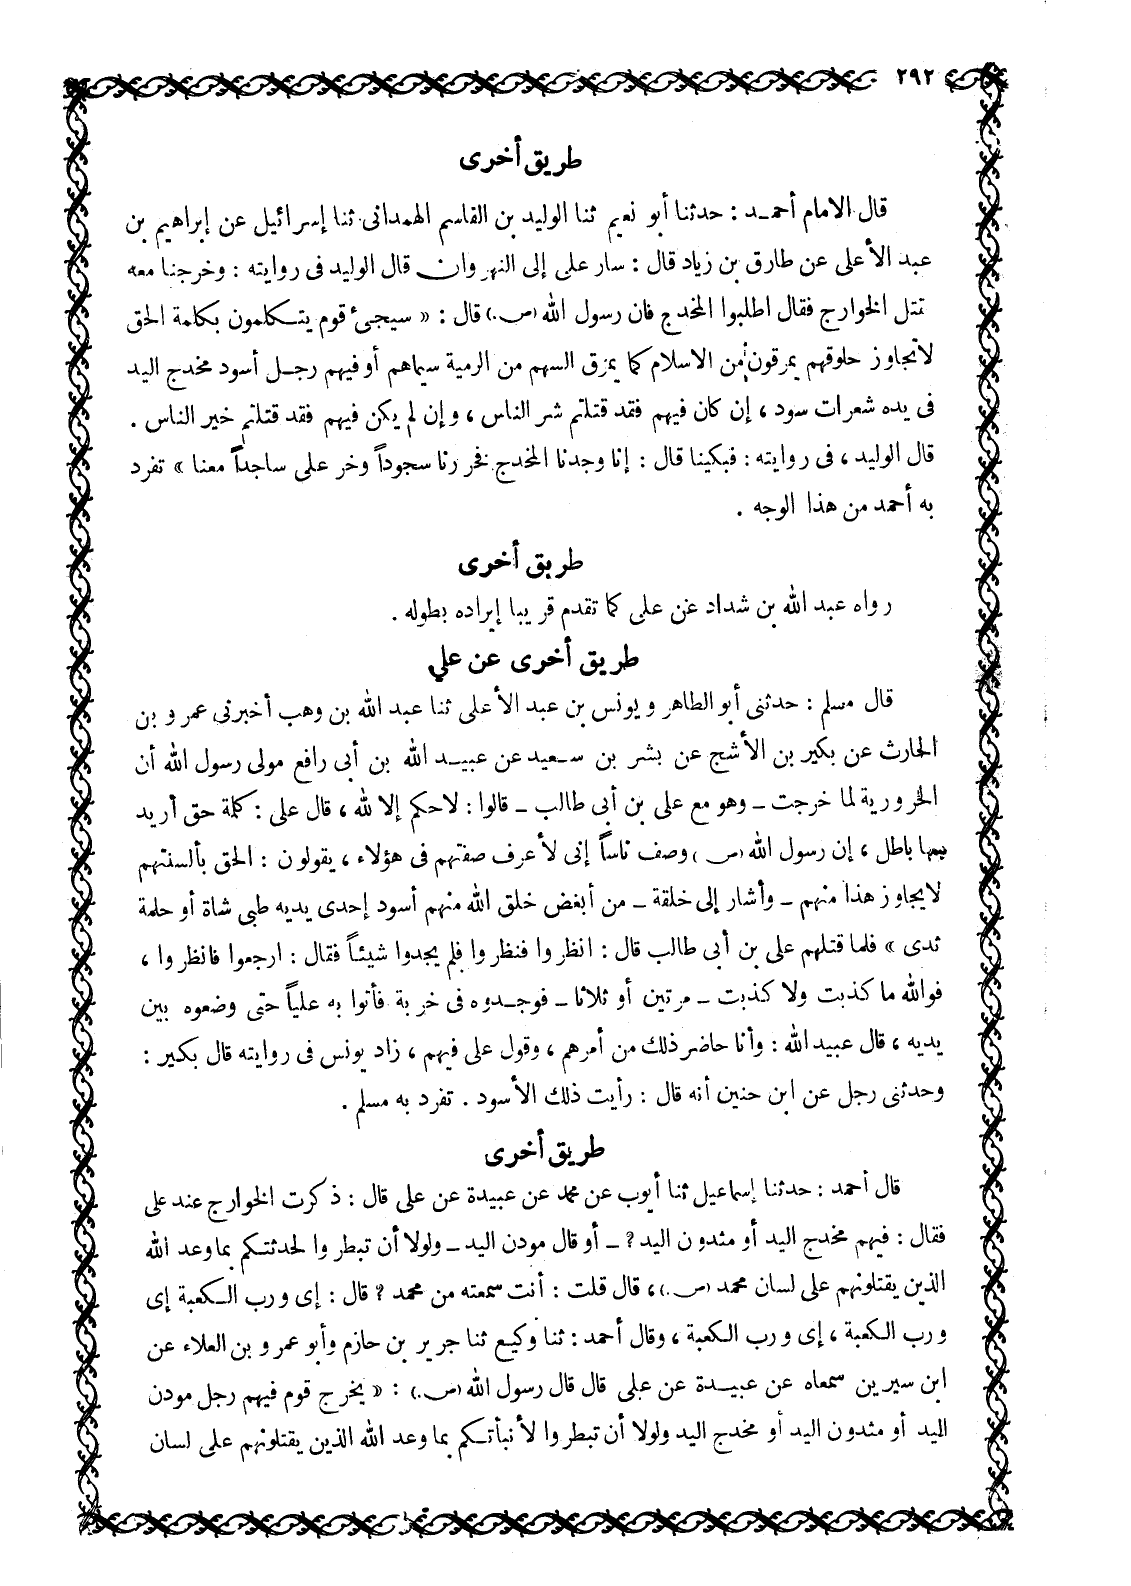 ٢٩٢
طريق أخرى
قال الامام أحمـد : حدثنا أبو نعيم ثنا الوليد بن القاسم الهمدانى ثنا إسرائيل عن إبراهيم بن
عبد الأعلى عن طارق بن زياد قال : سار على إلى النهروان قال الوليد فى روايته : وخرجنا معه
تقتل الخوارج فقال اطلبوا المخدج فان رسول الله (ص.) قال : « سيجئ قوم يتـكلمون بكلمة الحق
لاتجاوز حلوقهم يمرقون من الاسلام كما يمرق السهم من الرمية سيماهم أو فيهم رجـل أسود مخدج اليد
فى يده شعرات سود ، إن كان فيهم فقد قتلتم شر الناس ، وإن لم يكن فيهم فقد قتلتم خير الناس .
قال الوليد ، فى روايته : فبكينا قال : إنا وجدنا المخدج فخررنا سجوداً وخر على ساجداً معنا » تفرد
به أحمد من هذا الوجه .
طريق أخرى
رواه عبد الله بن شداد عن على كما تقدم قريبا إيراده بطوله .
طريق أخرى عن علي
قال مسلم : حدثنى أبو الطاهر ويونس بن عبد الأعلى ثنا عبد الله بن وهب أخبرنى عمرو بن
الحارث عن بكير بن الأشج عن بشر بن سـعيد عن عبيـد الله بن أبى رافع مولى رسول الله أن
الحرورية لما خرجت ـ وهو مع على بن أبى طالب ـ قالوا : لاحكم إلا لله ، قال على : كلمة حق أريد
بها باطل ، إن رسول الله (ص) وصف ناساً إنى لأعرف صفتهم فى هؤلاء ، يقولون : الحق بألسنتهم
لايجاوز هذا منهم ـ وأشار إلى خلقة ـ من أبغض خلق الله منهم أسود إحدى يديه طبى شاة أو حلمة
ثدى » فلما قتلهم على بن أبى طالب قال : انظروا فنظروا فلم يجدوا شيئـاً فقال : ارجعوا فانظروا ،
فوالله ما كذبت ولا كذبت ـ مرتين أو ثلاثا ـ فوجـدوه فى خربة فأتوا به علياً حتى وضعوه بين
يديه ، قال عبيد الله : وأنا حاضر ذلك من أمرهم ، وقول على فيهم ، زاد يونس فى روايته قال بكير :
وحدثنى رجل عن ابن حنين أنه قال : رأيت ذلك الأسود . تفرد به مسلم .
طريق أخرى
قال أحمد : حدثنا إسماعيل ثنا أيوب عن محمد عن عبيدة عن على قال : ذكرت الخوارج عند على
فقال : فيهم مخدج اليد أو مثدون اليد ؟ ـ أو قال مودن اليد ـ ولولا أن تبطروا لحدثتـكم بما وعد الله
الذين يقتلونهم على لسان محمد (ص.) ، قال قلت : أنت سمعته من محمد ؟ قال : إى ورب الـكعبة إى
ورب الـكعبة ، إى ورب الـكعبة ، وقال أحمد : ثنا وكيع ثنا جرير بن حازم وأبو عمرو بن العلاء عن
ابن سيرين سمعاه عن عبيـدة عن على قال قال رسول الله (ص.) : « يخرج قوم فيهم رجل مودن
اليد أو مثدون اليد أو مخدج اليد ولولا أن تبطروا لأنبأتـكم بما وعد الله الذين يقتلونهم على لسان